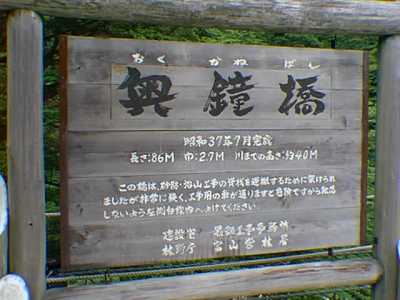 おく かね ばし
奥鐘橋
昭和37年7月完成
長さ:86M 巾:2.7M 川までの高さ:約40M
この橋は、砂防・治山工事の資材を運搬するために架けられ
ましたが非常に狭く、工事用の車が通りますと危険ですから熟読
しないよう左側白線内へよけてください。
建設省 黒部工事事務所
林野庁 富山営林署